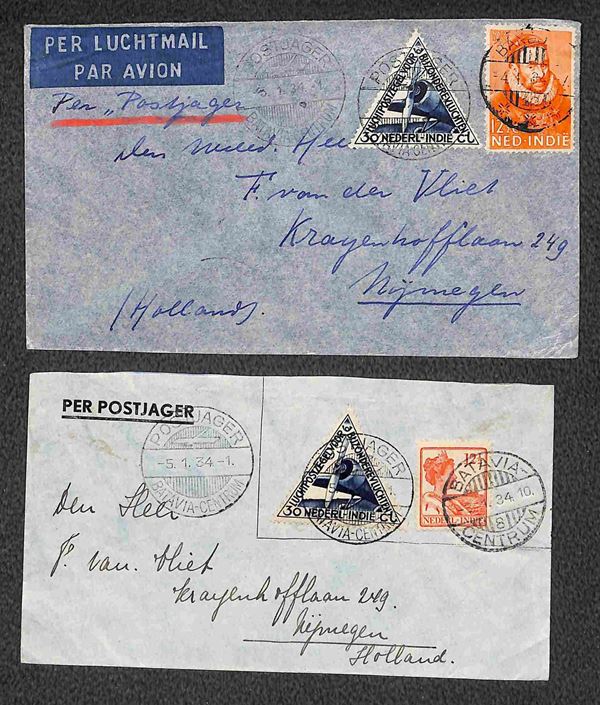 PER LUCHTMAIL
PAR AVION
Per „Postjager
POSTJAGER
BATAVIA-CENTRUM
POSTJAGER
BATAVIA-CENTRUM
LUCHTPOSTZEGEL VOOR BIJZONDERE VLUCHTEN
30 NEDERL-INDIE CT
12½
NED-INDIE
Den Weled. Heer
F. van der Vliet
Krayenhofflaan 249
Nijmegen
(Holland).
PER POSTJAGER
POSTJAGER
-5.1.34-1.
BATAVIA-CENTRUM
LUCHTPOSTZEGEL VOOR BIJZONDERE VLUCHTEN
30 NEDERL-INDIE CT
POSTJAGER
BATAVIA-CENTRUM
12½
NEDERL-INDIE
BATAVIA-
34.10.
CENTRUM
Den Heer
F. van. Vliet
Krayenhofflaan 249.
Nijmegen
Holland.